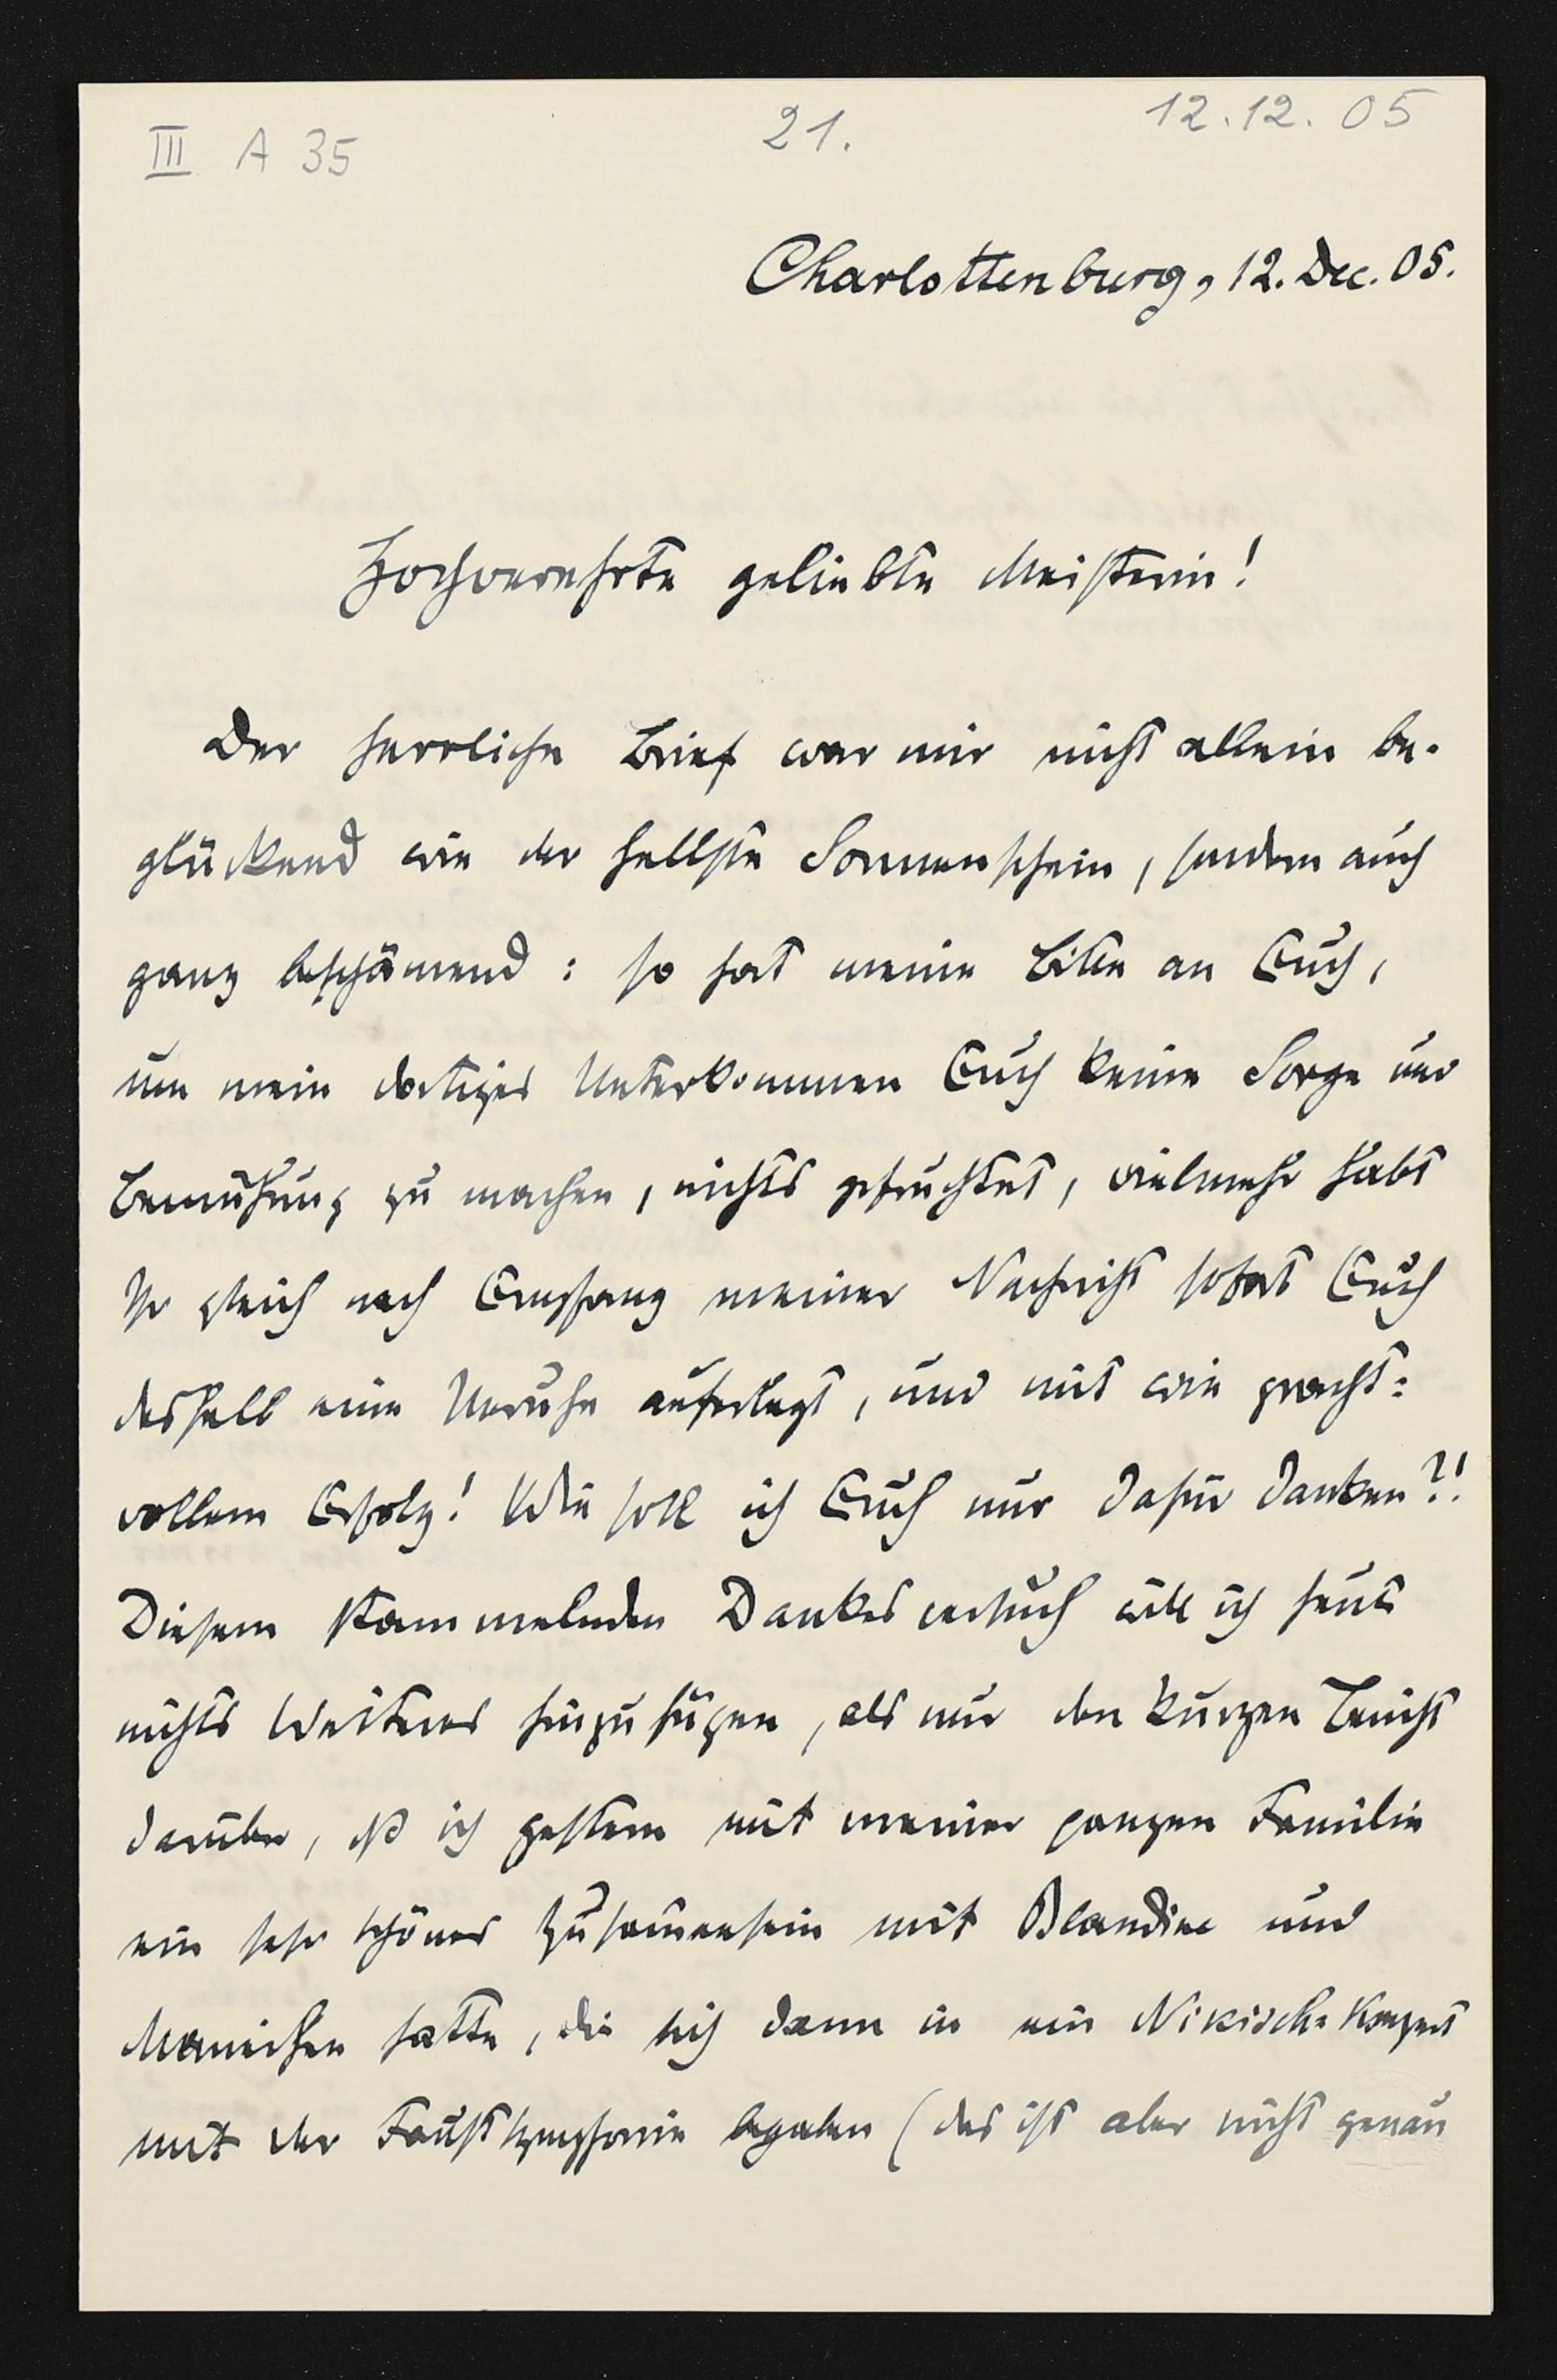 III A 35
21.
12.12.05
Charlottenburg, 12. Dec. 05.
Hochverehrte geliebte Meisterin!
Der herrliche Brief war mir nicht allein be-
glückend wie der hellste Sonnenschein, sondern auch
ganz beschämend: so hat meine Bitte an Euch,
um mein dortiges Unterkommen Euch keine Sorge und
Bemühung zu machen, nichts gefruchtet, vielmehr habt
Ihr gleich nach Empfang meiner Nachricht sofort Euch
deshalb eine Unruhe auferlegt, und mit wie pracht-
vollem Erfolg! Wie soll ich Euch nur dafür danken?!
Diesem stammelnden Dankesversuch will ich heut
nichts Weiteres hinzufügen, als nur den kurzen Bericht
darüber, dß ich gestern mit meiner ganzen Familie
ein sehr schönes Zusam̅ensein mit Blandine und
Manichen hatte, die sich dann in ein Nikisch-Konzert
mit der Faustsymphonie begaben (das ist aber nicht genau